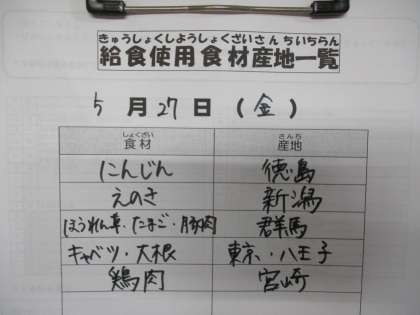 きゅうしょくしようしょくざいさんちいちらん
給食使用食材産地一覧
5 月 27 日 ( 金 )
しょくざい さんち
食材 産地
にんじん 徳島
えのき 新潟
ほうれん草・たまご・豚肉 群馬
キャベツ・大根 東京・八王子
鶏肉 宮崎